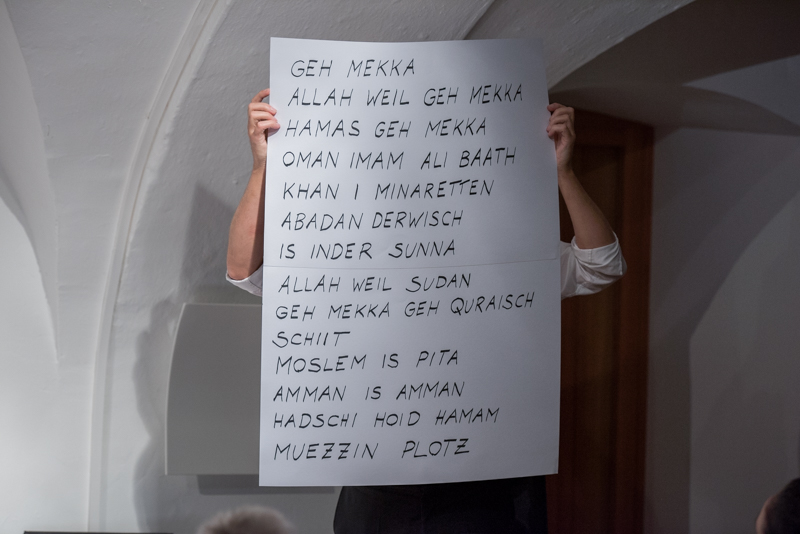 GEH MEKKA
ALLAH WEIL GEH MEKKA
HAMAS GEH MEKKA
OMAN IMAM ALI BAATH
KHAN I MINARETTEN
ABADAN DERWISCH
IS INDER SUNNA
ALLAH WEIL SUDAN
GEH MEKKA GEH QURAISCH
SCHIIT
MOSLEM IS PITA
AMMAN IS AMMAN
HADSCHI HOID HAMAM
MUEZZIN PLOTZ